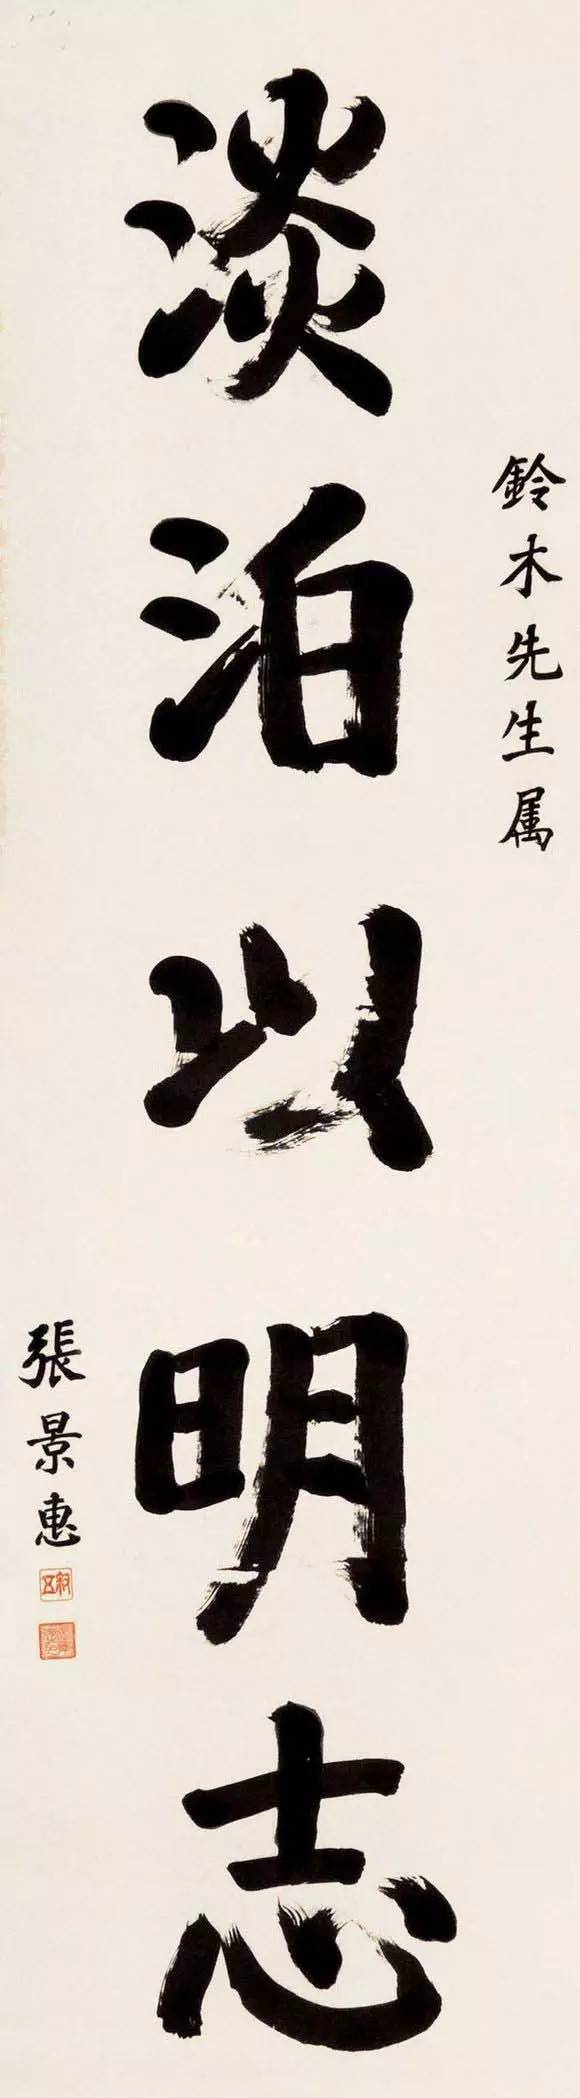 鈴木先生属
淡泊以明志
張景惠
叙五